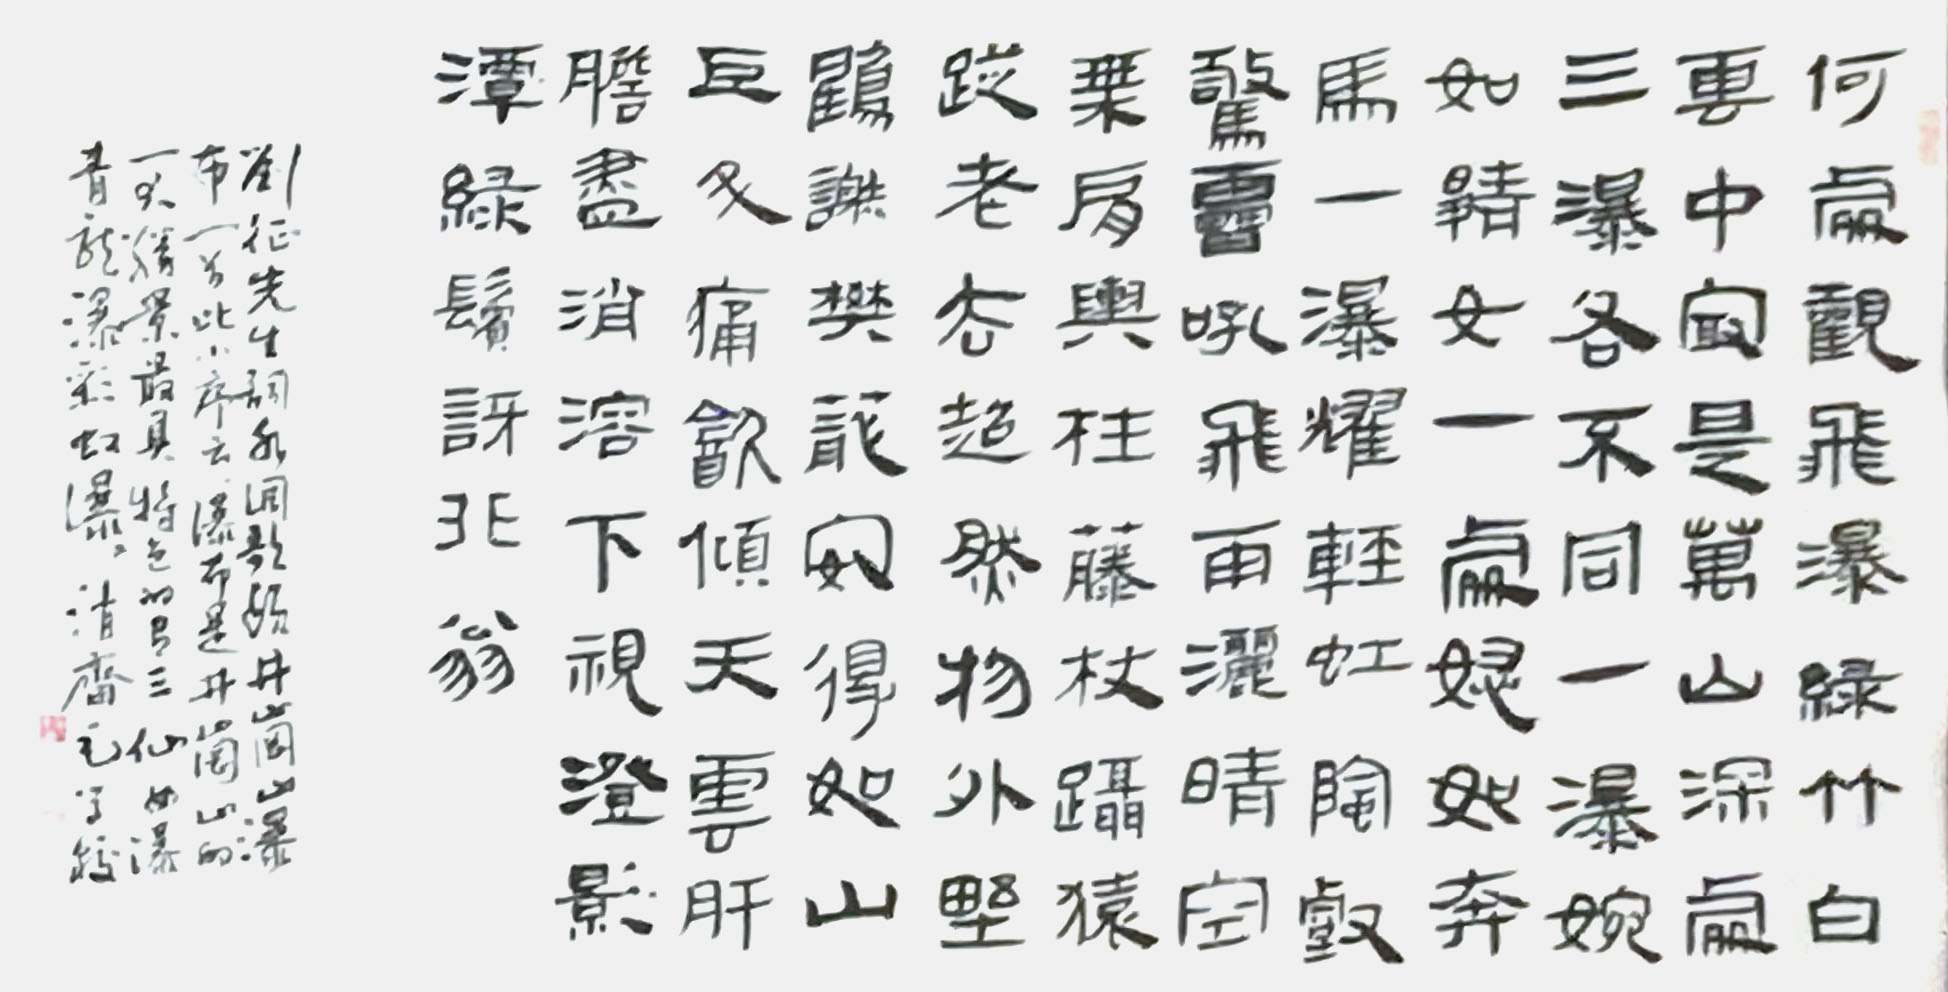 何處觀飛瀑綠竹白
雲中寂是萬山深處
三瀑各不同一瀑婉
如靜女一處怒如奔
馬一瀑耀輕虹陶
驚雷吼飛雨灑晴空
栗肩輿柱藤杖躡猿
蹤老態超然物外野
鶴謝樊籠安得如山
巨久痛飲傾天雲肝
膽盡消溶下視澄影
潭綠鬢訝北翁
劉征先生詞水調歌頭井岡山瀑
布一首此小序云瀑布是井岡山的
一大勝景最具特色的為三仙女瀑
青龍瀑彩虹瀑 清齋